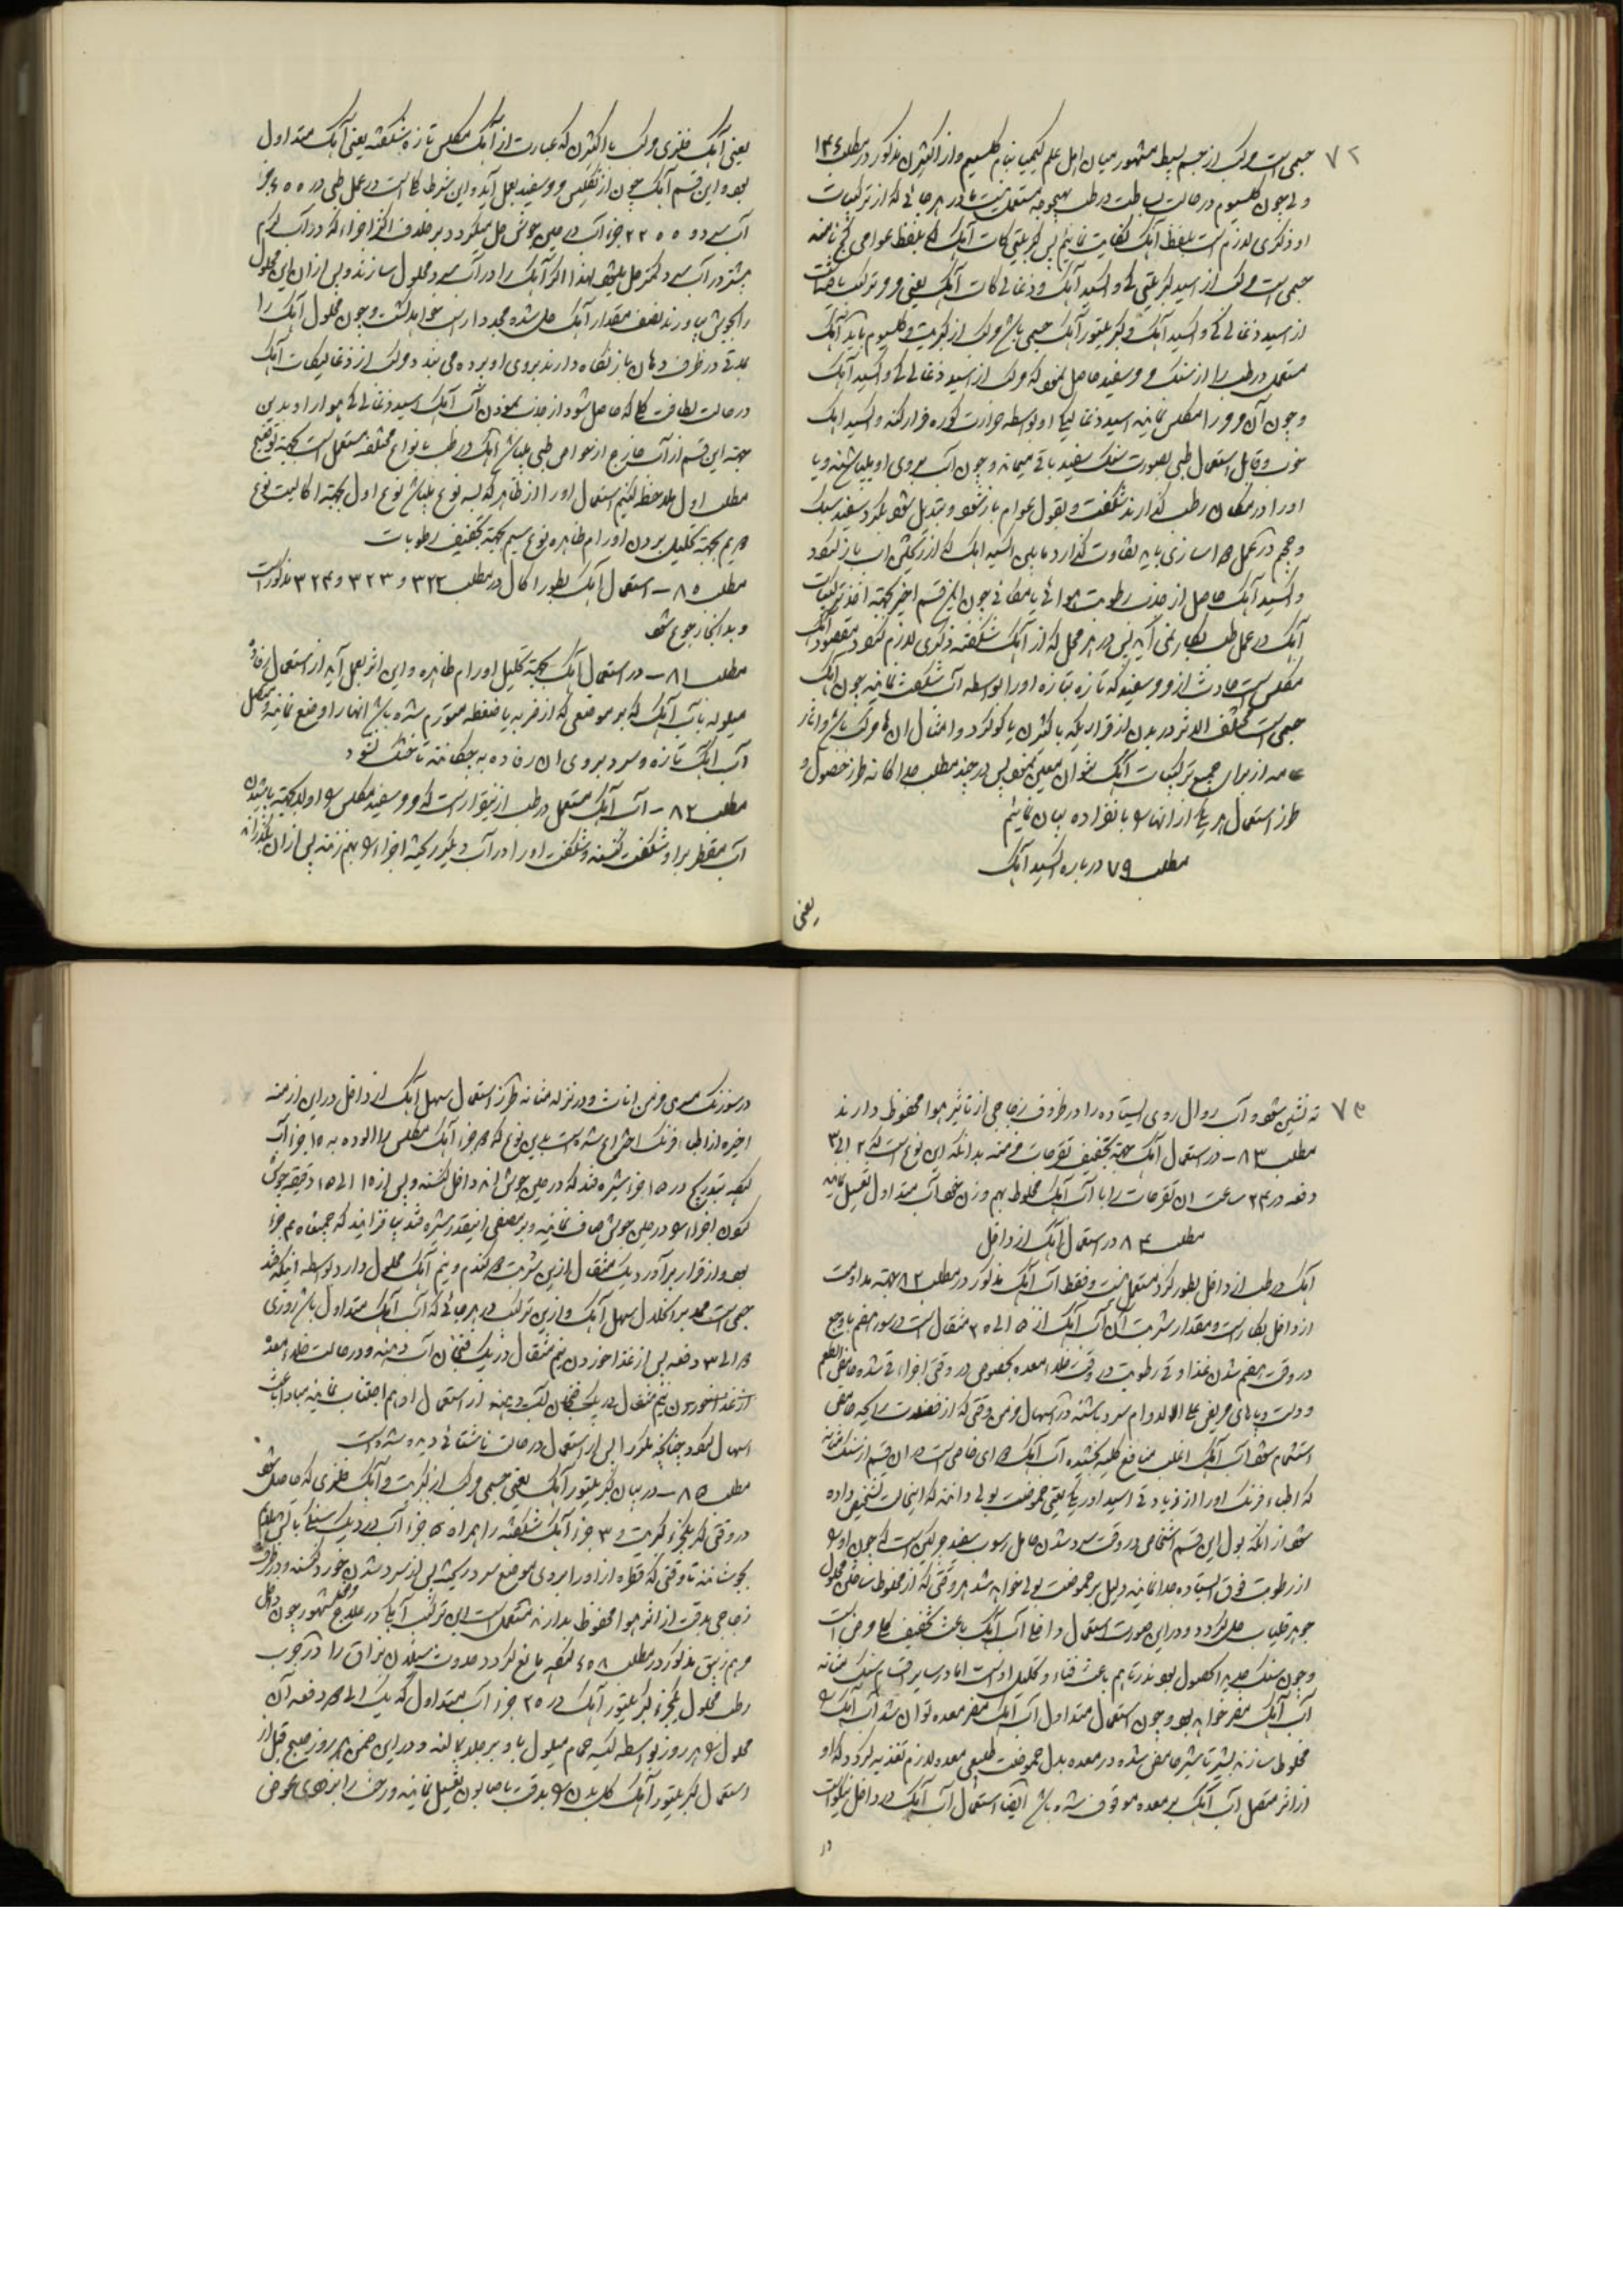 ۷۲
جسمی است مرکب از جسم بسیط مشهور میان اهل علم کیمیا بنام کلسیم و از اکثرن مذکور در مطلب ۱۳۶
ولی چون کلسیوم در حالت بساطت در طب بهیچوجه مستعمل نیست ما در هر جائی که از ترکیبات
او ذکری لازم است بلفظ آهک کفایت نمائیم پس کبریتی کات آهک که بلفظ عوامی گچ نامند
جسمی است مرکب از اسید کبریتی کی و اکسید آهک و ذغالی کات آهک یعنی مرمر ترکیب یافته است
از اسید ذغالی کی و اکسید آهک و کبریتور آهک جسمی باشد مرکب از کبریت و کلسیوم باید آهک
مستعمل در طب را از سنک مرمر سفید حاصل نمود که مرکب از اسید ذغالی کی و اکسید آهک
و چون آن مرمر را مکلس نمایند اسید ذغالیکی او بواسطه حرارت کوره فرار کند و اکسید آهک
خوب و قابل استعمال طبی بصورت سنک سفید باقی میماند و چون آب بروی او بپاشند و یا
او را در مکان رطب گذارند شکفت و بقول عوام باز شود و مبدل شود بگرد سفید سبک
واکسید آهک حاصل از جذب رطوبت هوائی یا مکانی چون این قسم اخیر بجهة اخذ ترکیبات
آهک در عمل طب بکار نمی آید پس در هر محل که از آهک شکفته ذکری لازم شود مقصود آهک
مکلس است حادث از مرمر سفید که تازه بتازه او را بواسطه آب شکفت نمایند چون آهک
جسمی است مختلف الاثر در بدن از قراریکه با اکثرن یا گوگرد و امثال آن ها مرکب باشد و آثار
عامه از برای جمیع ترکیبات آهک نتوان معین نمود پس در چند مطلب جداگانه طرز حصول و
طرز استعمال هر یک از آنها را بانفراده بیان نمائیم
مطلب ۷۹ درباره اکسید آهک
یعنی
یعنی آهک فلزی مرکب با اکثرن که عبارت از آهک مکلس تازه شکفته یعنی آهک متداول
بود و این قسم آهک چون از تکلیس مرمر سفید بعمل آید و این شرط کلی است در عمل طبی در ۶۵۵ جزء
بیشتر در آب سرد و کمتر حل میشود لهذا اگر آهک را در آب سرد محلول سازند و پس از آن این محلول
را بجوش بیاورند نصف مقدار آهک حل شده مجددا راسب خواهد گشت و چون محلول آهک را
مدتی در ظرف دهان باز نگاه دارند بروی او پرده می بندد مرکب از ذغالیکات آهک
در حالت لطافت کلی که حاصل شود از جذب نمودن آب آهک اسید ذغالی کی هوا را و بدین
جهة این قسم از آب خارج از خواص طبی میباشد آهک در طب بانواع مختلفه مستعمل است بجهة توضیح
مطلب اول ملاحظه کنیم استعمال او را از ظاهر که بسه نوع میباشد نوع اول بجهة اکالیت نوع
دویم بجهة تحلیل بردن اورام ظاهره نوع سیم بجهة تجفیف رطوبات
مطلب ۸۰ – استعمال آهک بطور اکال در مطلب ۳۲۲ و ۳۲۳ و ۳۲۴ مذکور است
و بدانجا رجوع شود
مطلب ۸۱ – در استعمال آهک بجهة تحلیل اورام ظاهره و این اثر بعمل آید از استعمال رفاده
مبلوله بآب آهک که بر موضعی که از ضربه یا ضغطه متورم شده باشد آنها را وضع نمایند و متصل
آب آهک تازه و سرد بروی آن رفاده بچکانند تا خشک نشود
مطلب ۸۲ – آب آهک مستعمل در طب ازینقرار است که مرمر سفید مکلس را اولا بجهة پاشیدن
آب مقطر بر او شکفت کنند و شکفت او را در آب دیگر ریخته اجزاء را بهم زنند پس از آن بگذارند
۷۳
ته نشین شود و آب زلال روی ایستاده را در ظروف زجاجی از تاثیر هوا محفوظ دارند
مطلب ۸۳ – در استعمال آهک بجهة تجفیف تقرحات مزمنه بدانکه این نوع است که ۲ الی ۳
دفعه در ۲۴ ساعت آن تقرحات را با آب آهک مخلوط بهم وزن خود آب متداول تغسیل نمایند
مطلب ۸۴ در استعمال آهک از داخل
آهک در طب از داخل بطور گرد مستعمل نیست و فقط آب آهک مذکور در مطلب ۸۲ بجهة مداومت
از داخل بکار است و مقدار شربت آن آب آهک از ۵ الی ۳۰ مثقال است در سوء هضم با وجع
در وقت هضم شدن غذا و قی رطوبت در وقت خلاء معده بخصوص در وقتی اجزاء قی شده حامض الطعم
و دست و پاهای مریض علی الدوام سرد باشند در اسهال مزمن وقتی که از فضلات رایحه حامضی
استشمام شود آب آهک اغلب منافع کلیه بخشیده آب آهک دوای خاصی است در آن قسم از سنک مثانه
که اطباء فرنک او را از زیادتی اسید اوریکی یعنی حموضت بولی دانند که این حالت تشخیص داده
شود از آنکه بول این قسم اشخاص در وقت سرد شدن حامل رسوب سفید چرکین است که چون او را
از رطوبت فوق ایستاده جدا نمایند دلیل بر حموضت بولی خواهد شد هر وقتی که از مخلوط ساختن محلول
جوهر قلیاب حل گردد و در این صورت استعمال داخلی آب آهک باعث تخفیف کلی مرض است
آب آهک مضر خواهد بود و چون استعمال متداول آب آهک مضر معده تواند شد آب آهک را
مخلوط سازند بشیر تا شیر حامض شده در معده بدل حموضت طبیعی معده لازم تغذیه گردد که او
از اثر متصل آب آهک بر معده موقوف شده باشد ایضا استعمال آب آهک در داخل نیکو است
در
در سوزنک مسری مزمن اناث و در نزله مثانه طرز استعمال سهل آهک از داخل در این ازمنه
اخیره از اطباء فرنک اختراع شده است بدین نوع که
نمودن اجزاء را در حین جوش صاف نمایند و بر مصفی اینقدر شیره قند بیافزایند که جمیعا ۴۰ جزء
بود و از قرار برآورد یک مثقال ازین شربت دو گندم و نیم آهک محلول دارد بواسطه اینکه قند
جسمی است ممد بر انحلال سهل آهک و ازین ترکیب در هر جائی که آب آهک متداول باشد روزی
۲ الی ۳ دفعه پس از غذا خوردن نیم مثقال در یک فنجان آب دهند و در حالت خلاء معده
اسهال شود چنانچه مکررا پس از استعمال در حالت ناشتائی دیده شده است
مطلب ۸۵ – در بیان کبریتور آهک یعنی جسمی مرکب از کبریت و آهک فلزی که حاصل شود
در وقتی که یکجزء کبریت و ۳ جزء آهک شکفته را همراه ۵ جزء آب در دیک سنگی با آتش ملایم
بجوشانند تا وقتی که قطره از او را بروی موضع سرد ریخته پس از سرد شدن خورد کنند و در ظروف
زجاجی بدقت از اثر هوا محفوظ بدارند مستعمل است این ترکیب آهک در علاج
مرهم زیبق مذکور در مطلب ۶۵۸ تنقیه مانع گردد حدوث سیلان بزاق را در جرب
رطب محلول یکجزء کبریتور آهک در ۲۵ جزء آب متداول که یک الی دو دفعه آن
محلول را هر روز بواسطه کیسه حمام مبلول باو بر جلد بمالند و در این ضمن هر روز صبح قبل از
استعمال کبریتور آهک کل بدن را بدقت با صابون تغسیل نمایند و رخت را بزودی عوض